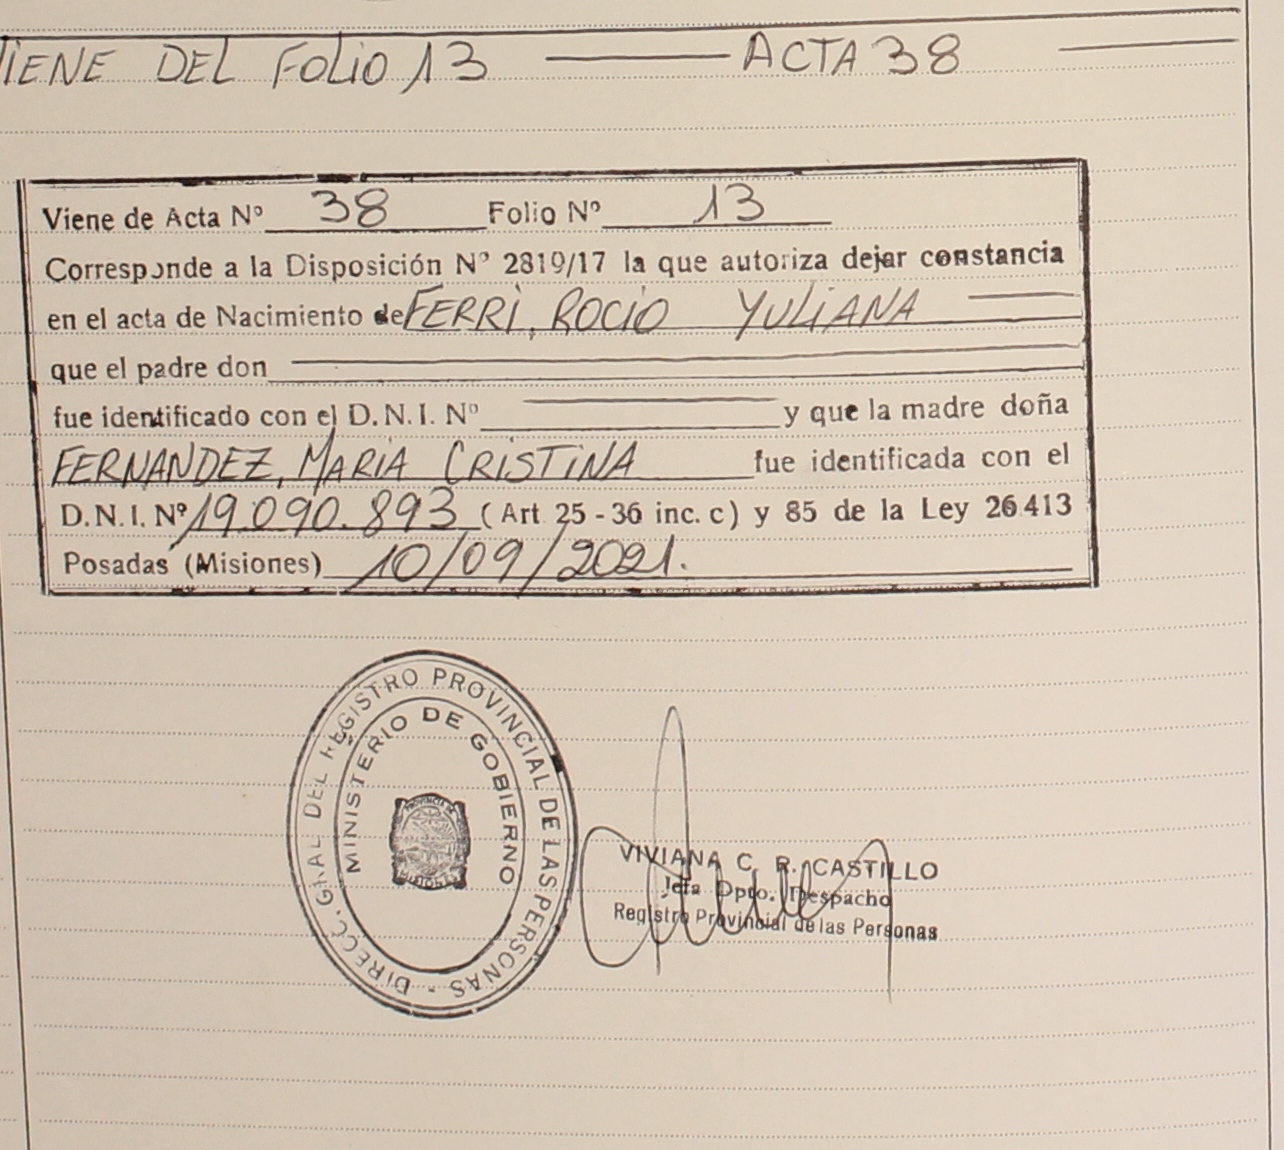 IENE DEL FOLIO 13 ——— ACTA 38 ———
Viene de Acta Nº 38 Folio Nº 13
Corresponde a la Disposición Nº 2819/17 la que autoriza dejar constancia
en el acta de Nacimiento de FERRI, ROCIO YULIANA
que el padre don
fue identificado con el D.N.I. Nº ——— y que la madre doña
FERNANDEZ, MARIA CRISTINA fue identificada con el
D.N.I. Nº 19.090.893 (Art 25 - 36 inc. c) y 85 de la Ley 26413
Posadas (Misiones) 10/09/2021.
DIRECC. GRAL DEL REGISTRO PROVINCIAL DE LAS PERSONAS -
MINISTERIO DE GOBIERNO
PROVINCIA DE
MISIONES
VIVIANA C. R. CASTILLO
Jefa Dpto. Despacho
Registro Provincial de las Personas